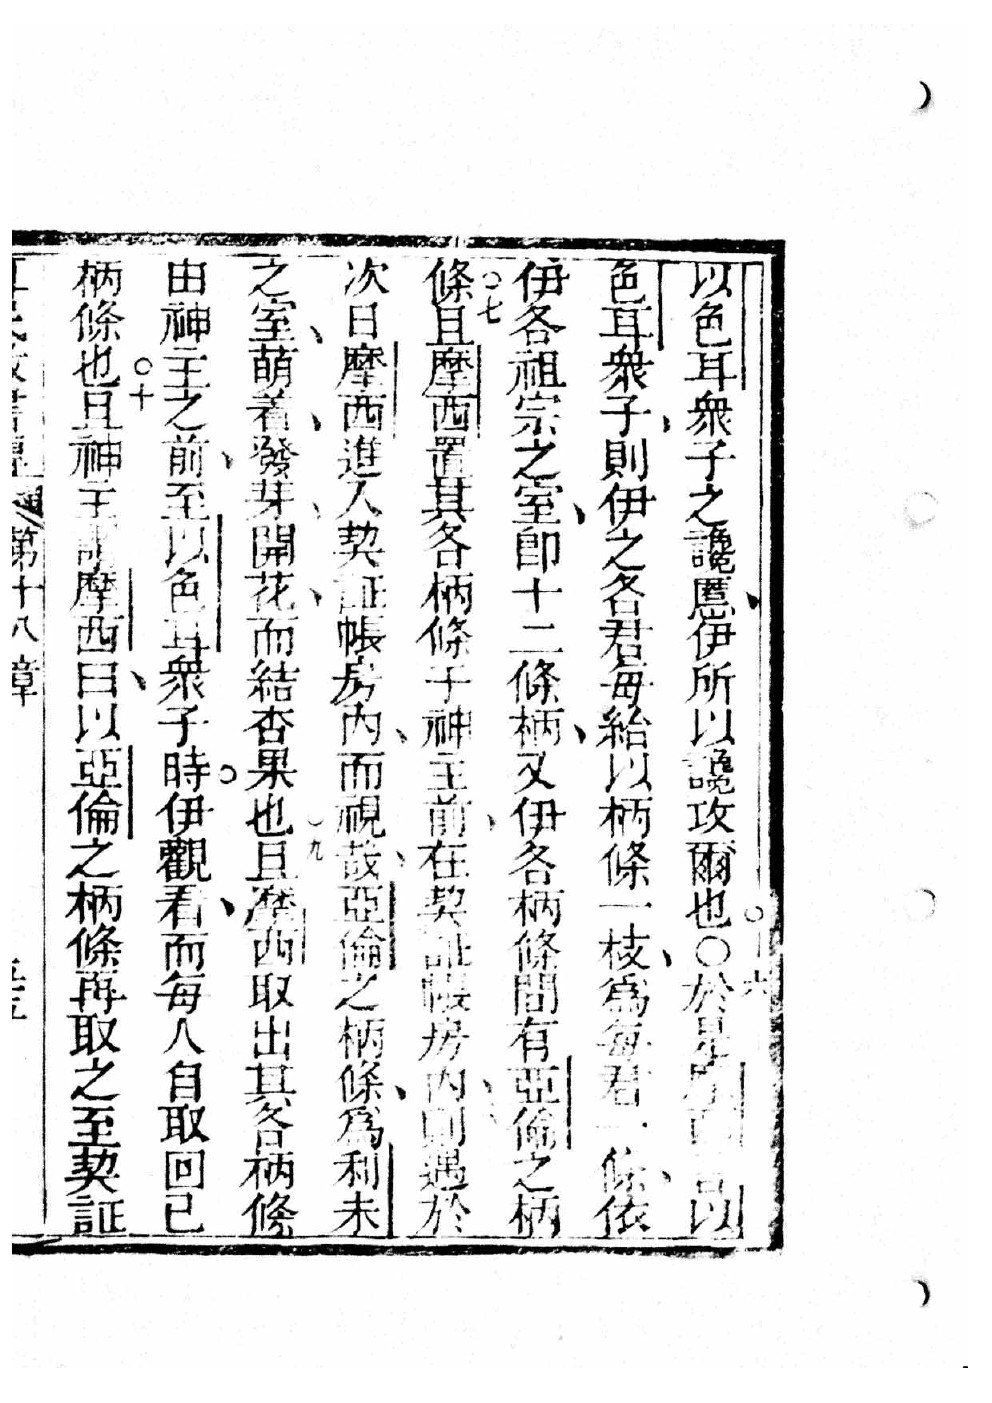 以色耳衆子之讒慝伊所以讒攻爾也〇於是摩西言以
六
色耳衆子則伊之各君每給以柄條一枝爲每君一條依
伊各祖宗之室卽十二條柄又伊各柄條間有亞倫之柄
七
條且摩西置其各柄條于神主前在契証帳房內則遇於
次日摩西進入契証帳房內而視哉亞倫之柄條爲利未
九
之室萌着發芽開花而結杏果也且摩西取出其各柄條
由神主之前至以色耳衆子時伊觀看而每人自取回己
十
柄條也且神主謂摩西曰以亞倫之柄條再取之至契証
第十八章